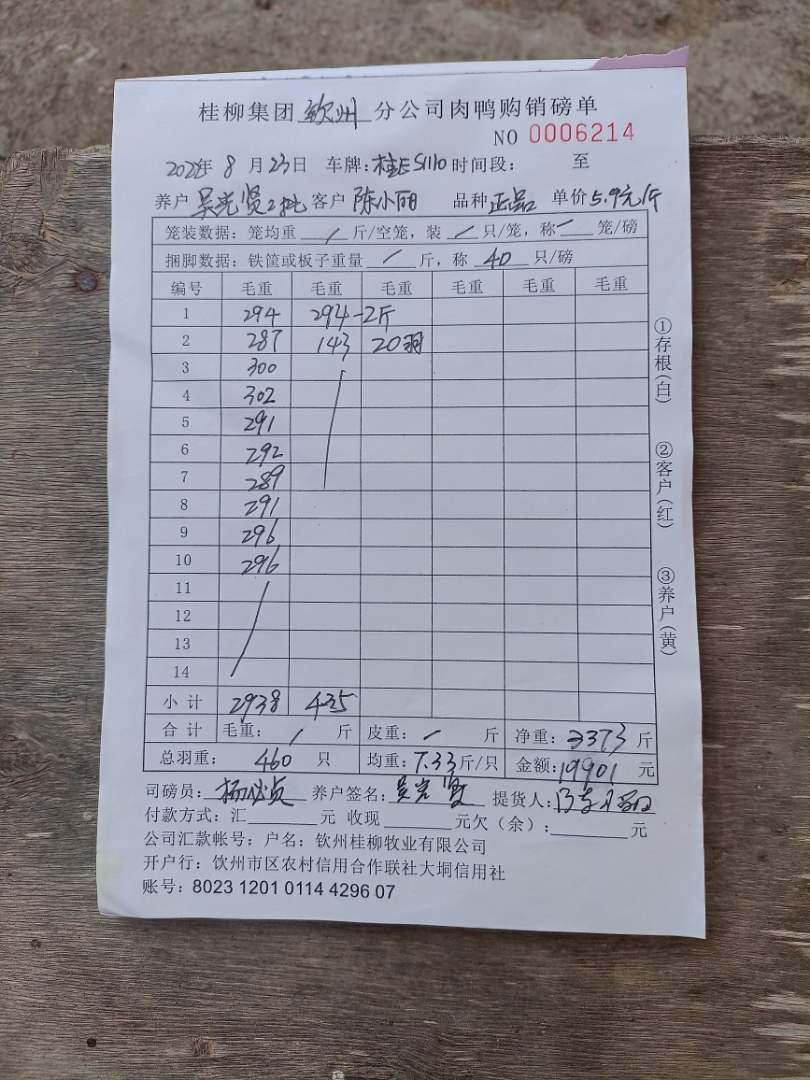 桂柳集团 钦州 分公司肉鸭购销磅单
NO 0006214
年 8 月 23 日 车牌: 桂E5110 时间段: 至
养户 吴光贤2批 客户 陈小丽 品种 正品 单价 5.9元/斤
笼装数据: 笼均重 / 斤/空笼, 装 / 只/笼, 称 / 笼/磅
捆脚数据: 铁筐或板子重量 / 斤, 称 40 只/磅
编号 毛重 毛重 毛重 毛重 毛重 毛重
1 294 294 -2斤
2 287 143 20羽
3 300
4 302
5 291
6 292
7 289
8 291
9 296
10 296
11
12
13
14
小计 2938 435
合计 毛重: / 斤 皮重: / 斤 净重: 3373 斤
总羽重: 460 只 均重: 7.33 斤/只 金额: 19901 元
司磅员: 养户签名: 吴光贤 提货人:
付款方式: 汇 元 收现 元欠(余): 元
公司汇款帐号: 户名: 钦州桂柳牧业有限公司
开户行: 钦州市区农村信用合作联社大垌信用社
账号: 8023 1201 0114 4296 07
①存根(白)
②客户(红)
③养户(黄)